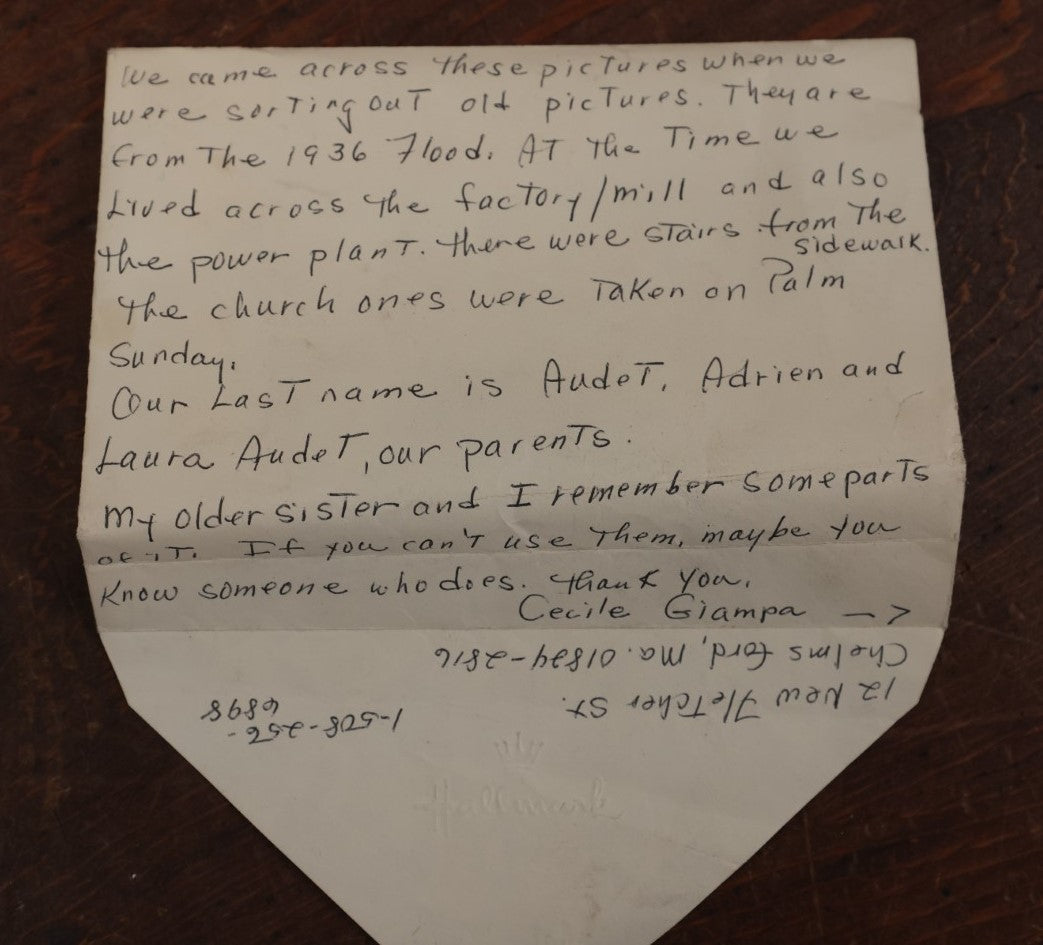 We came across these pictures when we
were sorting out old pictures. They are
from The 1936 Flood. AT the Time we
Lived across the factory/mill and also
the power plant. there were stairs from The
sidewalk.
the church ones were Taken on Palm
Sunday.
Our Last name is Audet, Adrien and
Laura Audet, our parents.
My older sister and I remember some parts
of it. If you can't use Them, maybe you
Know someone who does. thank you.
Cecile Giampa —>
12 New Fletcher St.
Chelmsford, Ma. 01824-2816
1-508-256-
6898
Hallmark